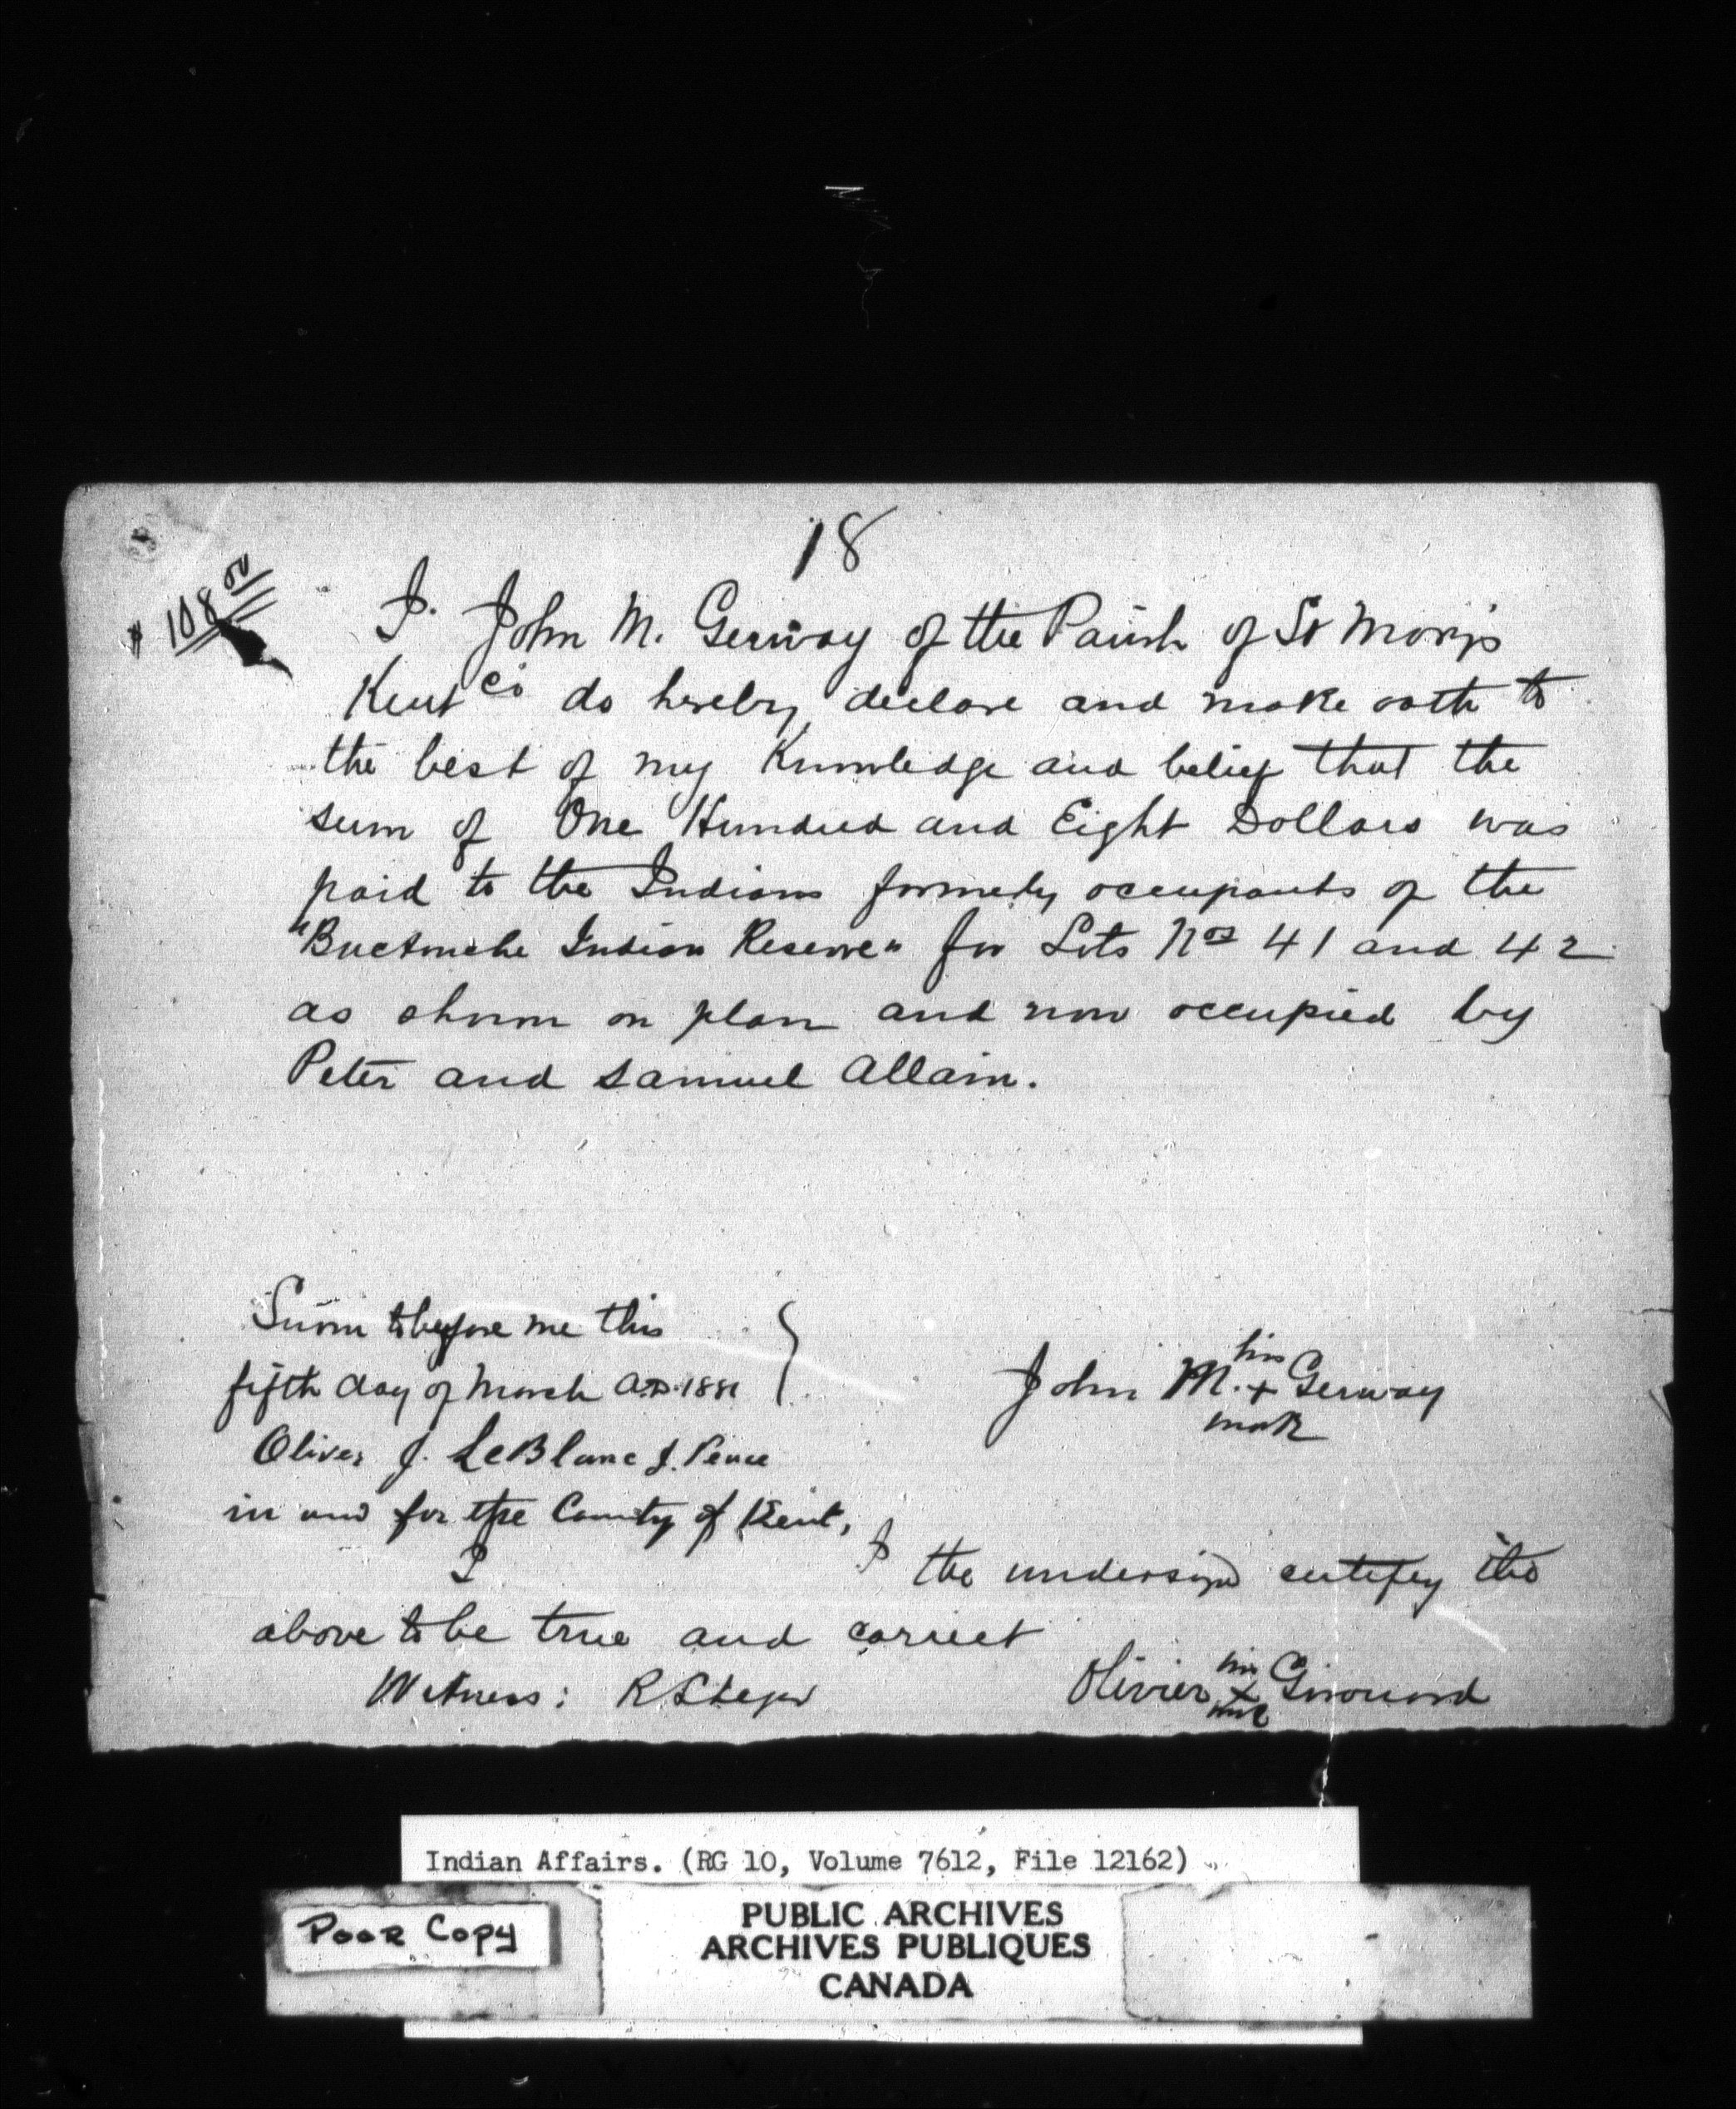 18
$108.00
I. John M. Gerway of the Parish of St Mary's
Kent Co do hereby declare and make oath to
the best of my Knowledge and belief that the
sum of One Hundred and Eight Dollars was
paid to the Indians formerly occupants of the
"Buctouche Indian Reserve" for Lots Nos 41 and 42
as shown on plan and now occupied by
Peter and Samuel Allain.
Sworn to before me this
fifth day of March A.D. 1881
Oliver J. LeBlanc J. Peace
in and for the County of Kent,
his
John M. + Gerway
mark
I
I the undersigned certify the
above to be true and correct
Witness:
his
Olivier X Girouard
mark
Indian Affairs. (RG 10, Volume 7612, File 12162)
Poor Copy
PUBLIC ARCHIVES
ARCHIVES PUBLIQUES
CANADA